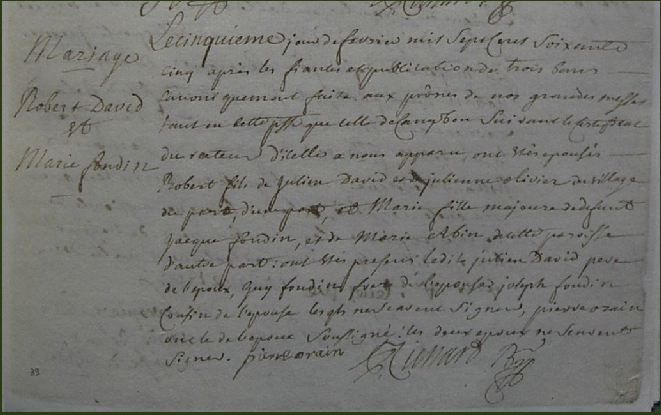 Mariage
Robert David
et
Marie fondin
Le cinquieme jour de fevrier mil Sept Cent Soixante
cinq après les fiances et publication de trois bans
canoniquement faitte aux prônes de nos grandes messes
tant en cette psse que celle de Campbon Suivant le Certificat
du recteur d'icelle a nous apparu, ont etés epousés
Robert fils de Julien David et julienne olivier du village
de d'une part, et Marie fille majeure de defunt
Jacque fondin, et de Marie Abin de cette paroisse
d'autre part: ont etes presens ledit julien David pere
de l'epoux, Guy fondin frere de l'epouse joseph fondin
Cousin de l'epouse lesqls ne scavent Signer, pierre orain
oncle de l'epoux Soussigné: les deux epoux ne Scavent
Signer. pierre orain
33